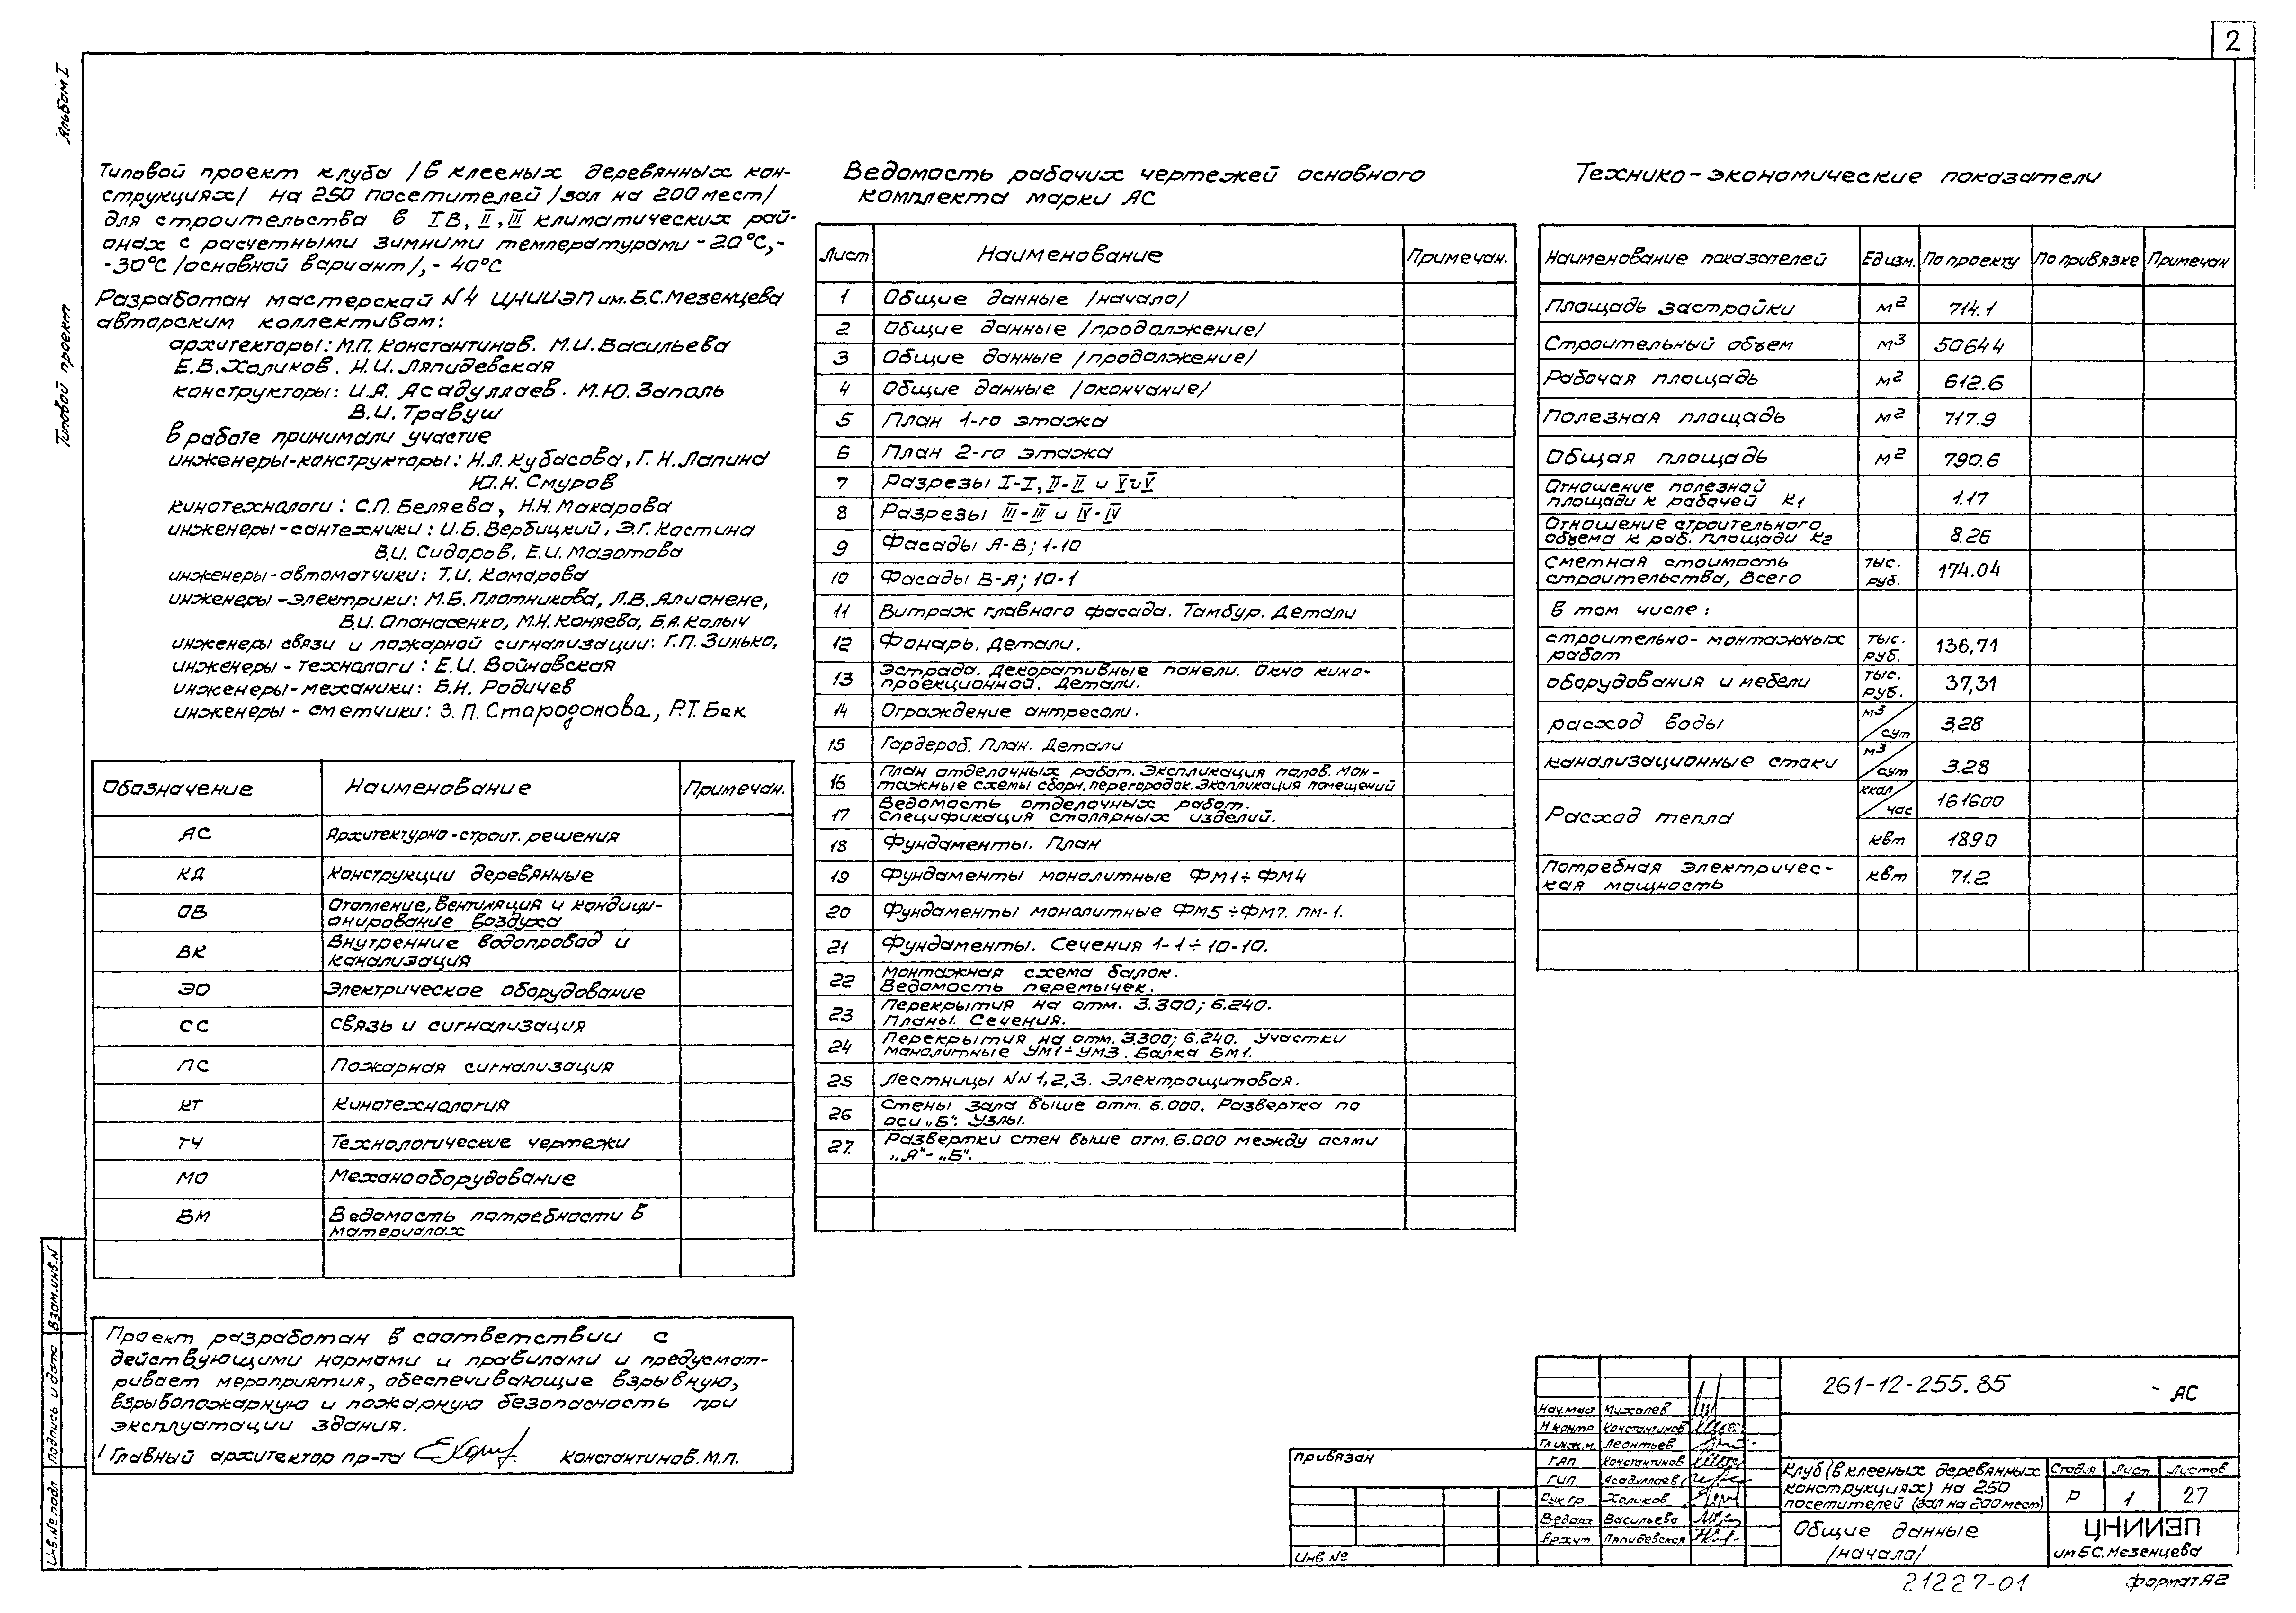 2
Альбом I
Типовой проект
Типовой проект клуба /в клееных деревянных кон-
струкциях/ на 250 посетителей /зал на 200 мест/
для строительства в IВ, II, III климатических рай-
онах с расчетными зимними температурами -20°С,-
-30°С /основной вариант/, - 40°С
Разработан мастерской №4 ЦНИИЭП им. Б.С. Мезенцева
авторским коллективом:
архитекторы: М.П. Константинов. М.И. Васильева
Е.В. Халиков. Н.И. Ляпидевская
конструкторы: И.А. Асадуллаев. М.Ю. Заполь
В.И. Травуш
в работе принимали участие
инженеры-конструкторы: Н.Л. Кубасова, Г.Н. Лапина
Ю.Н. Смуров
кинотехнологи: С.П. Беляева, Н.Н. Макарова
инженеры-сантехники: И.Б. Вербицкий, Э.Г. Костина
В.И. Сидоров, Е.И. Мазотова
инженеры-автоматчики: Т.И. Комарова
инженеры-электрики: М.Б. Плотникова, Л.В. Ялионене,
В.И. Опанасенко, М.Н. Коняева, Б.А. Колыч
инженеры связи и пожарной сигнализации: Г.П. Зинько,
инженеры-технологи: Е.И. Войновская
инженеры-механики: Б.Н. Родичев
инженеры-сметчики: З.П. Стародонова, Р.Т. Бек
Обозначение Наименование Примечан.
АС Архитектурно-строит. решения
КД Конструкции деревянные
ОВ Отопление, вентиляция и кондици-
онирование воздуха
ВК Внутренние водопровод и
канализация
ЭО Электрическое оборудование
СС Связь и сигнализация
ПС Пожарная сигнализация
КТ Кинотехнология
ТЧ Технологические чертежи
МО Механооборудование
ВМ Ведомость потребности в
материалах
Проект разработан в соответствии с
действующими нормами и правилами и предусмат-
ривает мероприятия, обеспечивающие взрывную,
взрывопожарную и пожарную безопасность при
эксплуатации здания.
Главный архитектор пр-та Константинов. М.П.
Ведомость рабочих чертежей основного
комплекта марки АС
Лист Наименование Примечан.
1 Общие данные /начало/
2 Общие данные /продолжение/
3 Общие данные /продолжение/
4 Общие данные /окончание/
5 План 1-го этажа
6 План 2-го этажа
7 Разрезы I-I, II-II и V-V
8 Разрезы III-III и IV-IV
9 Фасады А-В; 1-10
10 Фасады В-А; 10-1
11 Витраж главного фасада. Тамбур. Детали
12 Фонарь. Детали.
13 Эстрада. Декоративные панели. Окно кино-
проекционной. Детали.
14 Ограждение антресоли.
15 Гардероб. План. Детали
16 План отделочных работ. Экспликация полов. Мон-
тажные схемы сборн. перегородок. Экспликация помещений
17 Ведомость отделочных работ.
Спецификация столярных изделий.
18 Фундаменты. План
19 Фундаменты монолитные ФМ1÷ФМ4
20 Фундаменты монолитные ФМ5÷ФМ7. ПМ-1.
21 Фундаменты. Сечения 1-1÷10-10.
22 Монтажная схема балок.
Ведомость перемычек.
23 Перекрытия на отм. 3.300; 6.240.
Планы. Сечения.
24 Перекрытия на отм. 3.300; 6.240. Участки
монолитные УМ1-УМ3. Балка БМ1.
25 Лестницы NN 1,2,3. Электрощитовая.
26 Стены зала выше отм. 6.000. Развертка по
оси „Б". Узлы.
27. Развертки стен выше отм. 6.000 между осями
„А"-„Б".
Технико-экономические показатели
Наименование показателей Ед изм. По проекту По привязке Примечан
Площадь застройки м2 714.1
Строительный объем м3 50644
Рабочая площадь м2 612.6
Полезная площадь м2 717.9
Общая площадь м2 790.6
Отношение полезной
площади к рабочей К1 1.17
Отношение строительного
объема к раб. площади К2 8.26
Сметная стоимость
строительства, всего тыс. руб. 174.04
в том числе:
строительно-монтажных
работ тыс. руб. 136,71
оборудования и мебели тыс. руб. 37,31
расход воды м3/сут 3.28
канализационные стоки м3/сут 3.28
Расход тепла ккал/час 161600
квт 1890
Потребная электричес-
кая мощность квт 71.2
Взам. инв. N
Подпись и дата
Инв. № подл
привязан
Инв №
Нач. маст Михалев
Н. контр Константинов
Гл. инж. м. Леонтьев
ГАП Константинов
ГИП Асадуллаев
Рук гр Халиков
Вед. арх Васильева
Архит Ляпидевская
261-12-255.85 - АС
Клуб (в клееных деревянных
конструкциях) на 250
посетителей (зал на 200 мест)
Стадия Лист Листов
Р 1 27
Общие данные
/начало/
ЦНИИЭП
им Б.С. Мезенцева
21227-01
формат А2